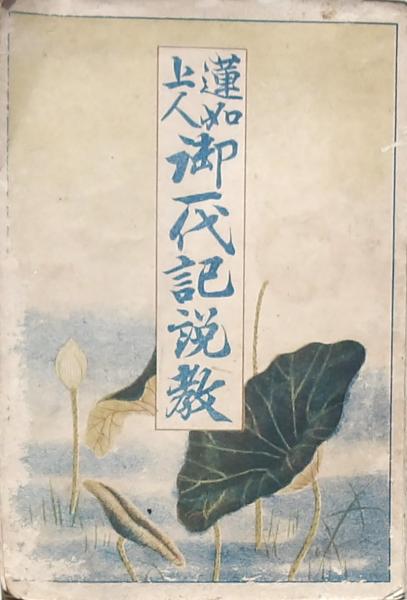 蓮如
上人
御一代記説教